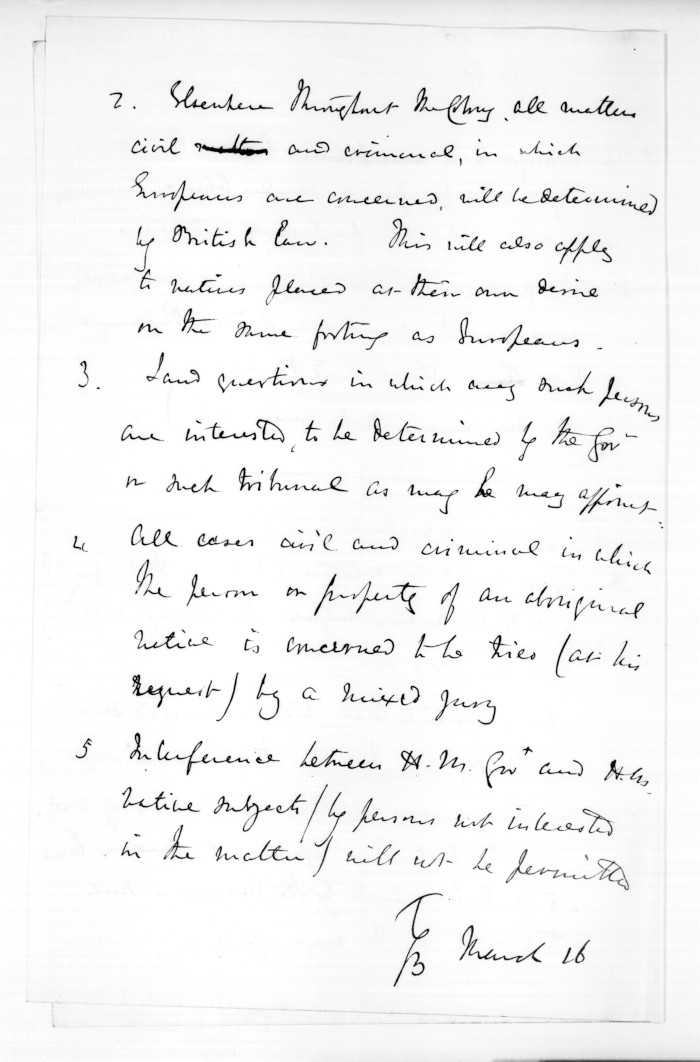 2. Elsewhere throughout the Colony, all matters
civil matters and criminal, in which
Europeans are concerned, will be determined
by British Law. This will also apply
to natives placed at their own desire
on the same footing as Europeans.
3. Land questions in which any such persons
are interested, to be determined by the Govt
or such tribunal as may be may appoint.
4 All cases civil and criminal in which
the person or property of an aboriginal
native is concerned to be tried (at his
request) by a mixed jury
5 Interference between H.M. Govt and H.M.
native subjects (by persons not interested
in the matter) will not be permitted
March 16